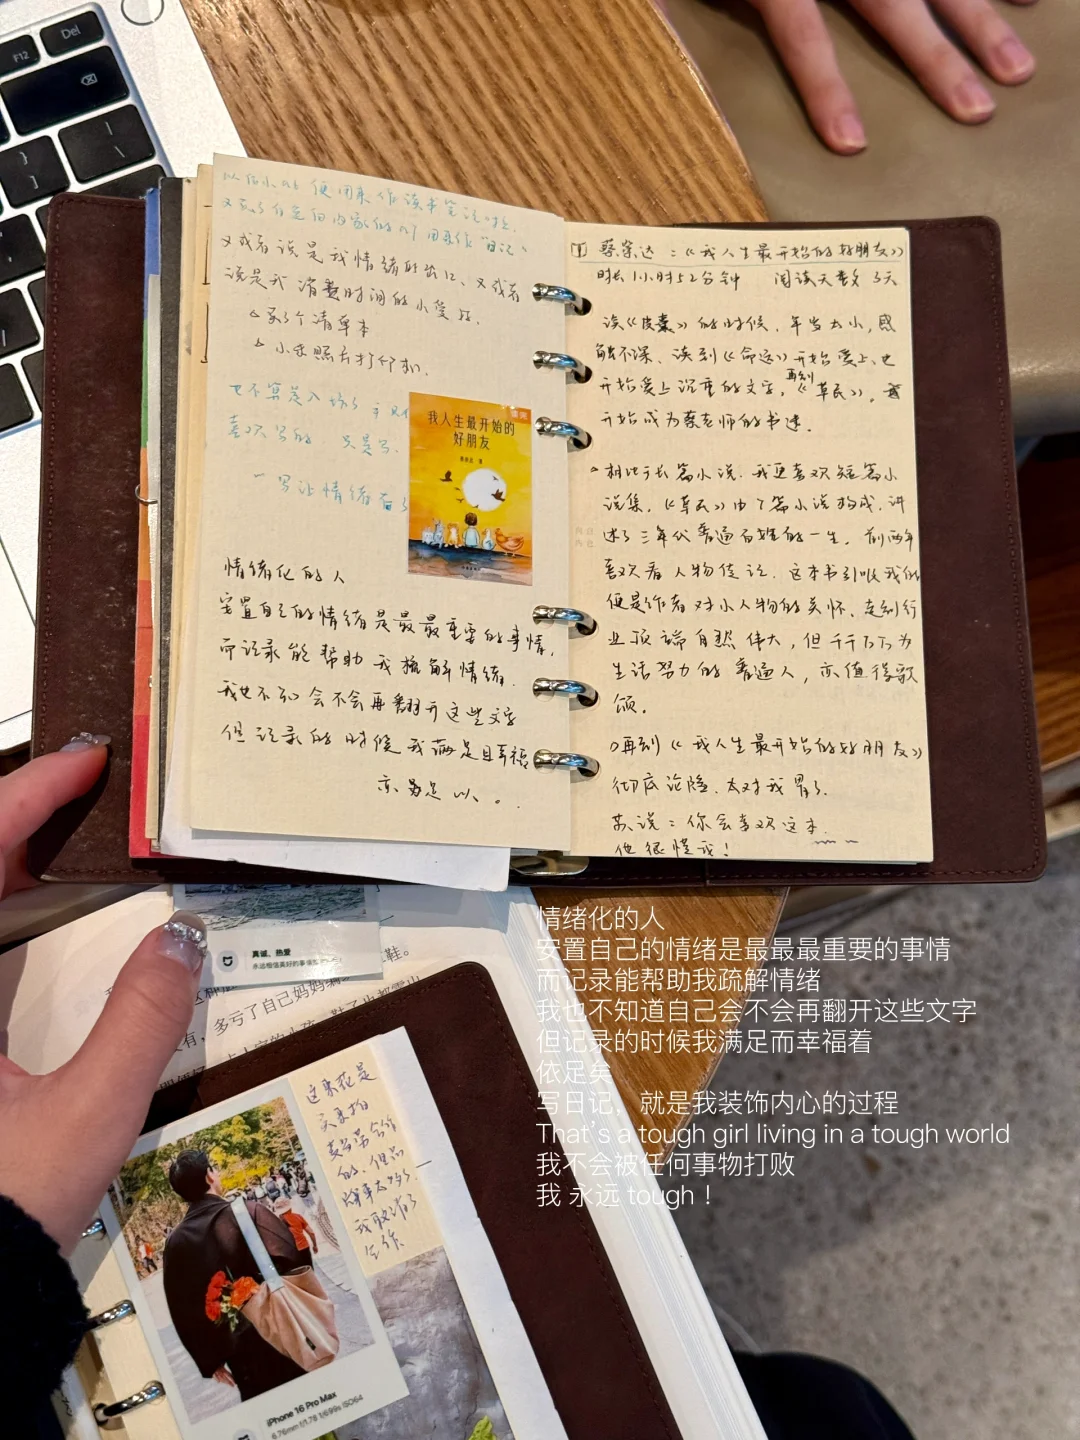 Del
F12
以后小 便用来作读书笔记啦，
用来作日记、
又或者说是我情绪的出口、又或者
说是我消费时间的小爱好。
买了个清单本
小米照片打印机.
也不算是入坑了
喜欢写的. 只是写.
一写让情绪有了
我人生最开始的
好朋友
蔡崇达 著
情绪化的人
安置自己的情绪是最最重要的事情,
而记录能帮助我梳解情绪.
我也不知会不会再翻开这些文字
但记录的时候我满足且幸福
亦易足以。
① 蔡崇达：《我人生最开始的好朋友》
时长1小时52分钟 阅读天数 3天
读《皮囊》的时候，年岁太小，感
触不深、读到《命运》开始爱上、也
开始爱上沉重的文字，再到《草民》，
开始成为蔡老师的书迷。
相比于长篇小说. 我更喜欢短篇小
说集，《草民》由7篇小说构成，讲
述了三年代普通百姓的一生，前两年
喜欢看人物传记. 这本书引吸我的
便是作者对小人物的关怀、走到行
业顶端自然伟大，但千千万万为
生活努力的普通人，亦值得歌
颂。
再到《我人生最开始的好朋友》
彻底沦陷、太对我胃了.
苏说：你会喜欢这本.
他很懂我！
真诚、热爱
永远相信美好的事情
鞋。
多亏了自己妈妈编
这束花是
我取消了
合作.
iPhone 16 Pro Max
6.76mm f/1.78 1/699s ISO64
情绪化的人
安置自己的情绪是最最最重要的事情
而记录能帮助我疏解情绪
我也不知道自己会不会再翻开这些文字
但记录的时候我满足而幸福着
依足矣
写日记，就是我装饰内心的过程
That's a tough girl living in a tough world
我不会被任何事物打败
我 永远 tough！